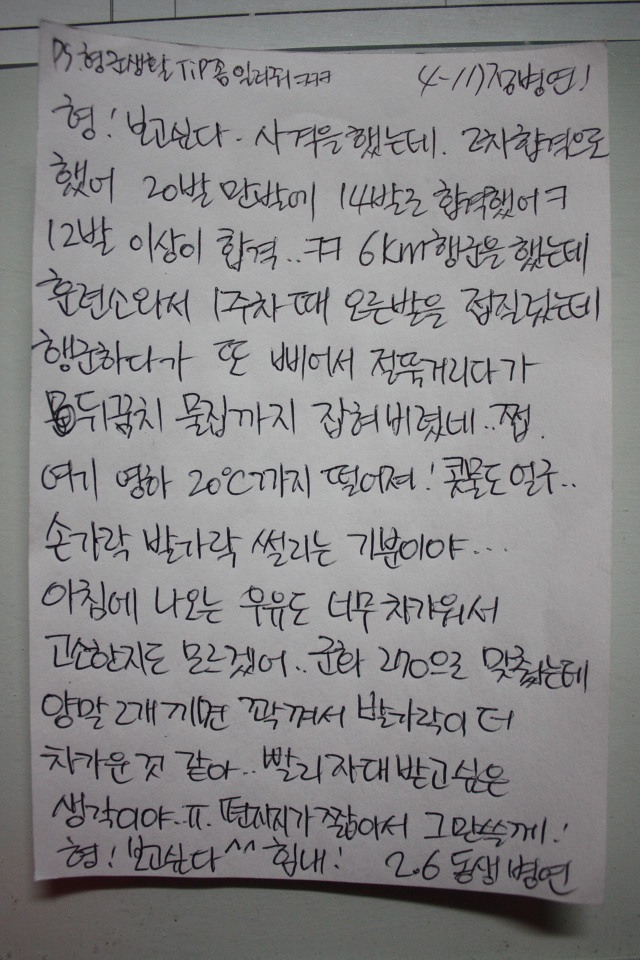 PS. 형 군생활 TiP 좀 일러줘 ㅋㅋㅋ 4-117 정병연!
형! 보고싶다. 사격을 했는데. 2차합격으로
했어 20발 만발에 14발로 합격했어 ㅋ
12발 이상이 합격.. ㅋㅋ 6km 행군을 했는데
훈련소와서 1주차 때 오른발을 접질렀는데
행군하다가 또 삐어서 절뚝거리다가
뒤꿈치 물집까지 잡혀버렸네.. 쩝.
여기 영하 20℃까지 떨어져! 콧물도 얼구..
손가락 발가락 썰리는 기분이야...
아침에 나오는 우유도 너무 차가워서
고소한지도 모르겠어.. 군화 270으로 맞췄는데
양말 2개 끼면 꽉 껴서 발가락이 더
차가운것 같아.. 빨리 자대 받고 싶은
생각이야.. ㅠ. 편지지가 짧아서 그만쓸께!
형! 보고싶다 ^^ 힘내! 2.6 동생 병연